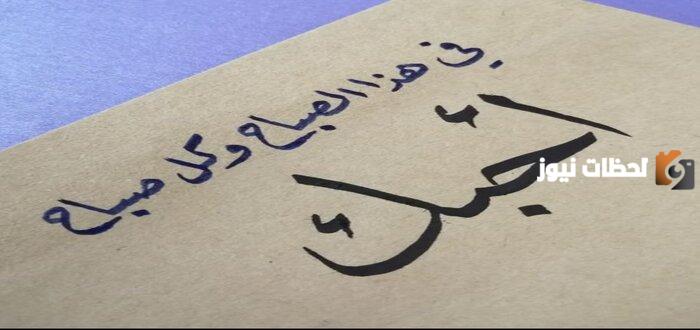 في هذا الصباح وكل صباح
أحبك
لحظات نيوز